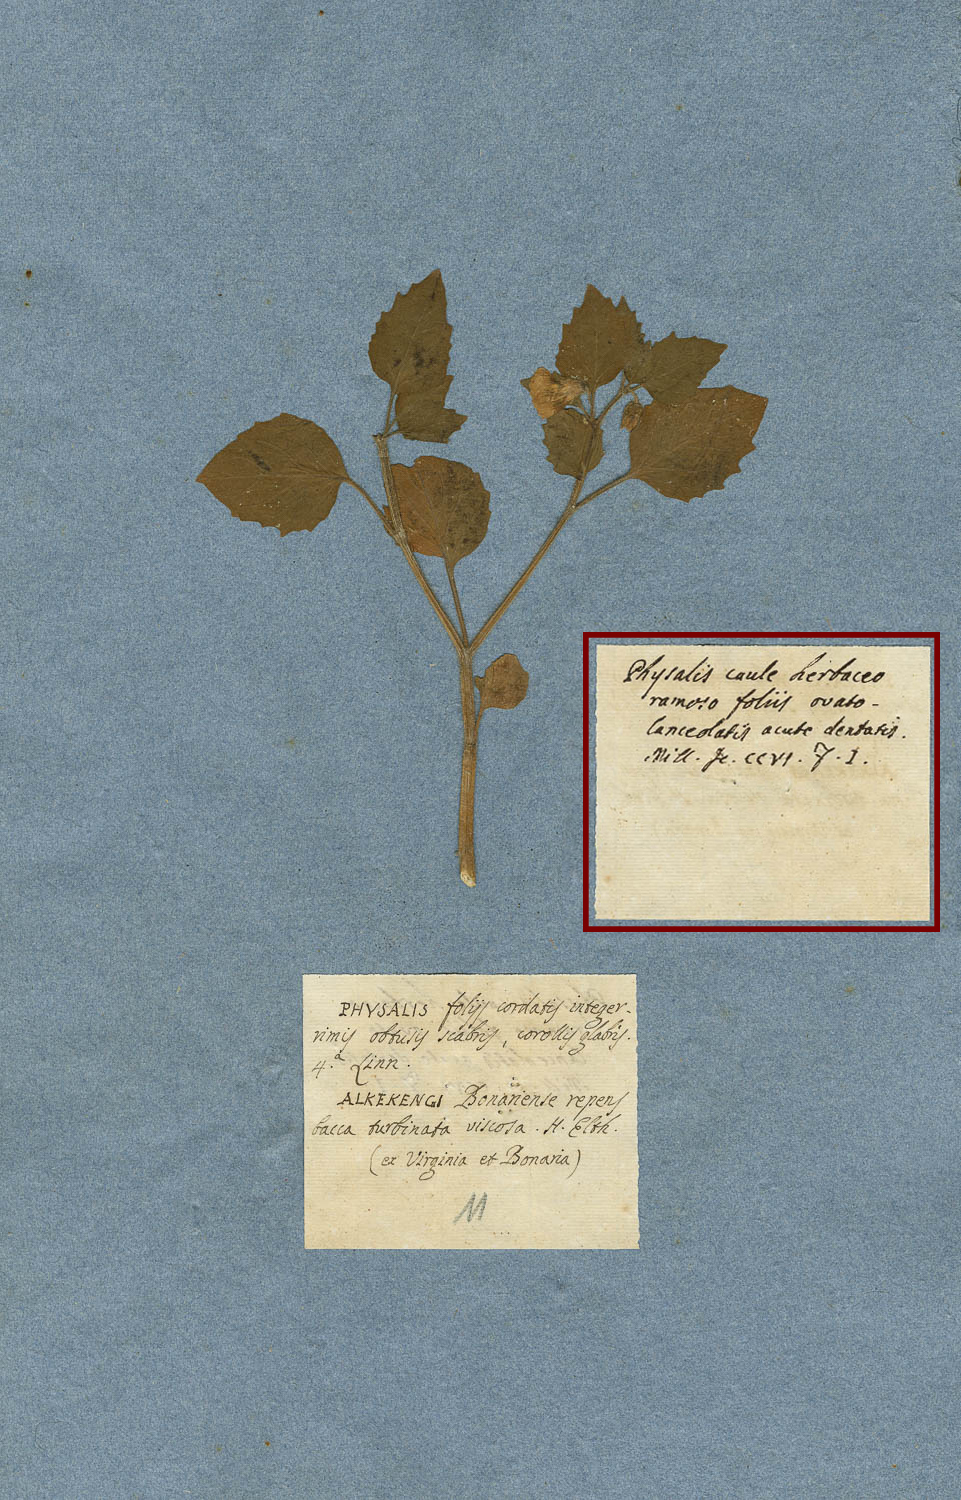 Physalis caule herbaceo
ramoso foliis ovato-
lanceolatis acute dentatis.
Mill. Ic. ccvi. f. 1.
PHYSALIS folijs cordatis integer-
rimis obtusis scabris, corollis glabris.
4.ª Linn.
ALKEKENGI Bonariense repens
bacca turbinata viscosa. H. Elth.
(ex Virginia et Bonaria)
11